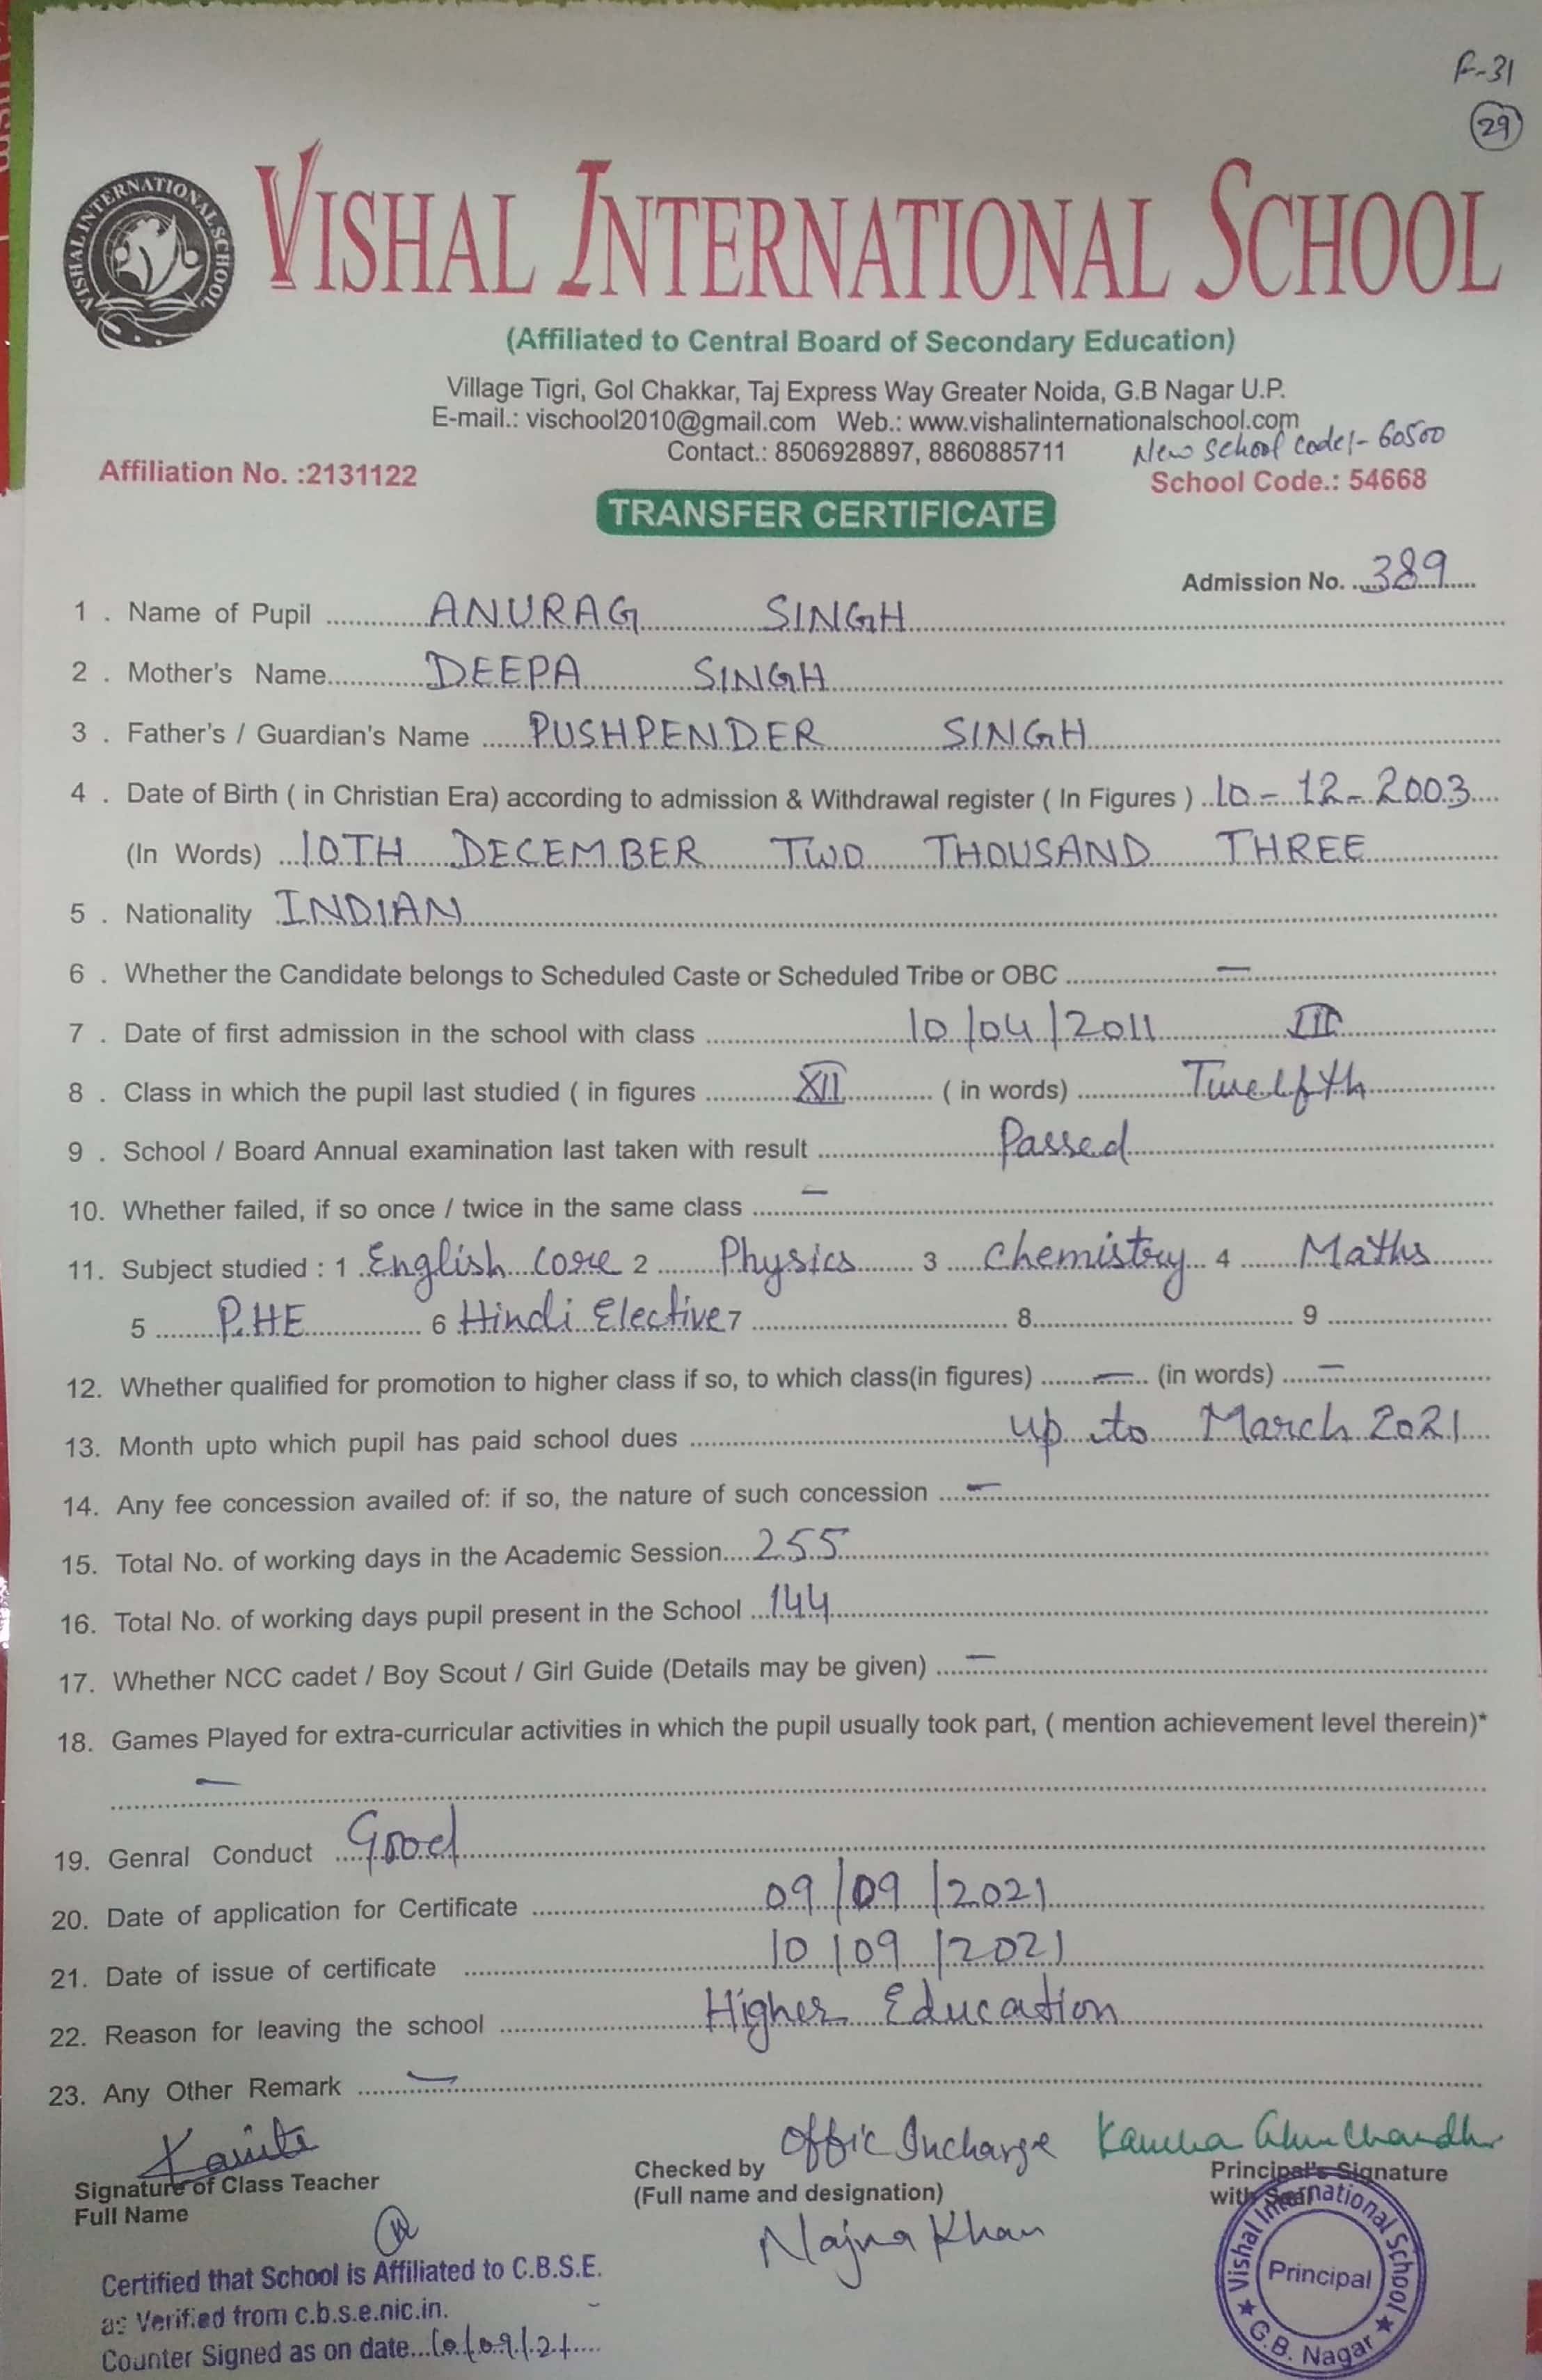 F-31
29
VISHAL INTERNATIONAL SCHOOL
VISHAL INTERNATIONAL SCHOOL
(Affiliated to Central Board of Secondary Education)
Village Tigri, Gol Chakkar, Taj Express Way Greater Noida, G.B Nagar U.P.
E-mail.: vischool2010@gmail.com Web.: www.vishalinternationalschool.com
Contact.: 8506928897, 8860885711 New School code:- 60500
Affiliation No. :2131122 School Code.: 54668
TRANSFER CERTIFICATE
Admission No. ...389......
1 . Name of Pupil ............ANURAG............SINGH............
2 . Mother's Name............DEEPA............SINGH............
3 . Father's / Guardian's Name ......PUSHPENDER............SINGH............
4 . Date of Birth ( in Christian Era) according to admission & Withdrawal register ( In Figures ) ..10-12-2003....
(In Words) ...10TH DECEMBER TWO THOUSAND THREE............
5 . Nationality .INDIAN............
6 . Whether the Candidate belongs to Scheduled Caste or Scheduled Tribe or OBC ............—............
7 . Date of first admission in the school with class ............10/04/2011............III............
8 . Class in which the pupil last studied ( in figures ............XII............ ( in words) ............Twelfth............
9 . School / Board Annual examination last taken with result ............Passed............
10. Whether failed, if so once / twice in the same class ......—............
11. Subject studied : 1 .English Core 2 ......Physics...... 3 .....Chemistry... 4 ......Maths......
5 ......P.HE............ 6 .Hindi Elective 7 ............ 8............ 9 ............
12. Whether qualified for promotion to higher class if so, to which class(in figures) ......—..... (in words) .....—............
13. Month upto which pupil has paid school dues ............up to March 2021....
14. Any fee concession availed of: if so, the nature of such concession .....—............
15. Total No. of working days in the Academic Session....255............
16. Total No. of working days pupil present in the School ...144............
17. Whether NCC cadet / Boy Scout / Girl Guide (Details may be given) .....—............
18. Games Played for extra-curricular activities in which the pupil usually took part, ( mention achievement level therein)*
......—............
19. Genral Conduct ....Good............
20. Date of application for Certificate ............09/09/2021............
21. Date of issue of certificate ............10/09/2021............
22. Reason for leaving the school ............Higher Education............
23. Any Other Remark ......—............
Offic Incharge
Signature of Class Teacher Checked by Principal's Signature
Full Name (Full name and designation) with Seal
Najna Khan
Certified that School is Affiliated to C.B.S.E.
as Verified from c.b.s.e.nic.in.
Counter Signed as on date...10/09/21....
Vishal International School
Principal
G.B. Nagar